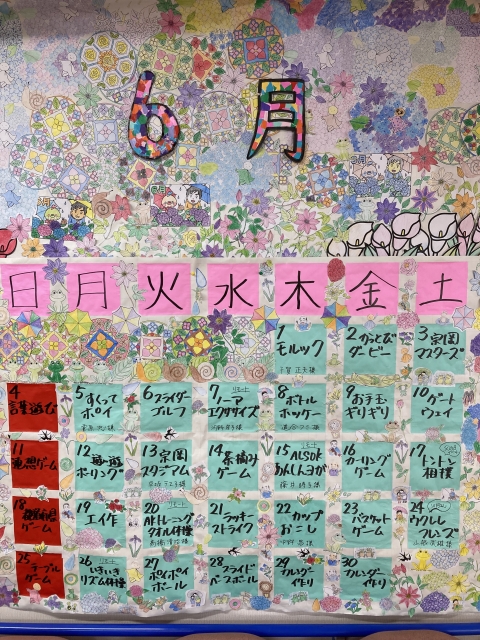 6月
日 月 火 水 木 金 土
1 モルック
2 かっとび
ダービー
3 宗岡
マスターズ
4
言葉遊び
5 すくって
ポイ
6 スライダー
ゴルフ
7 リモート
ノーア
エクササイズ
8 ボトル
ホッケー
9 お手玉
ギリギリ
10 ゲート
ウェイ
11
ゲーム
12
ボーリング
13 宗岡
スタジアム
14 糸摘み
ゲーム
15 ALSOK
あんしんヨガ
16 カーリング
ゲーム
17 トントン
相撲
18
ゲーム
19
工作
20 リモート
トレーニング
タオル体操
21 ラッキー
ストライク
22 カップ
おこし
23 バスケット
ゲーム
24 ウクレレ
フレンズ
25 テーブル
ゲーム
26 リモート
いきいき
リズム体操
27
ポイポイ
ボール
28 スライド
ベースボール
29
カレンダー
作り
30
カレンダー
作り